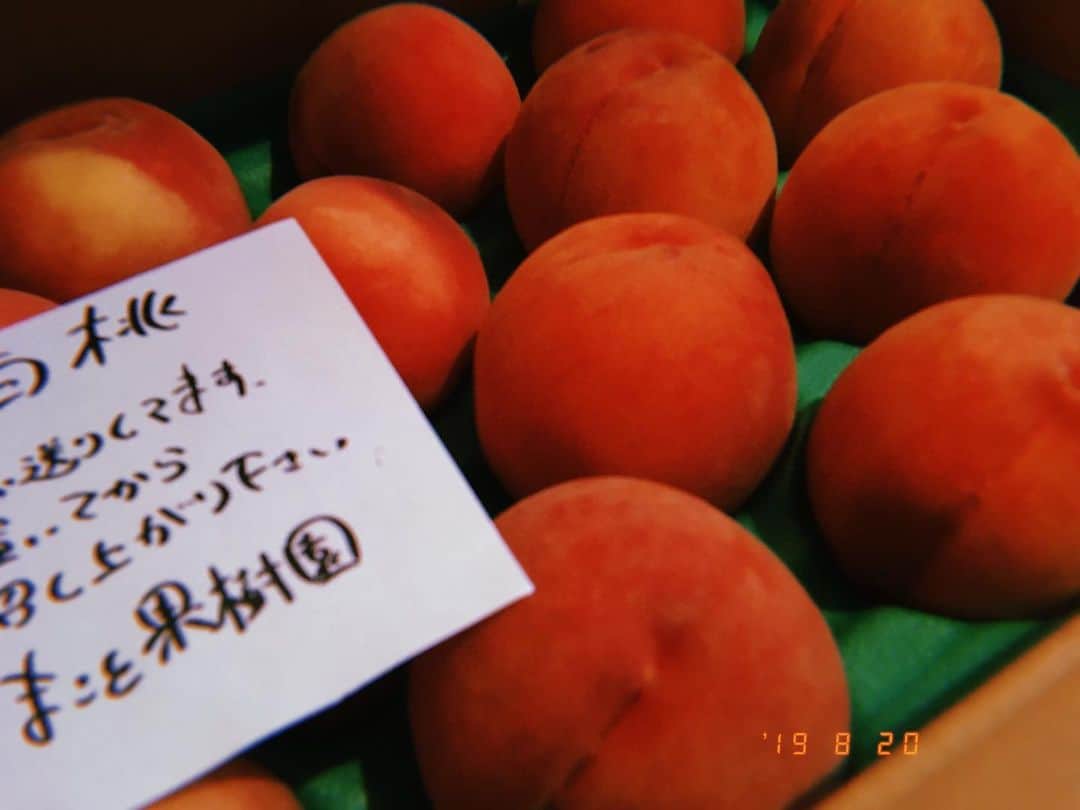 白桃
送りしてます。
てから
召し上がり下さい
まこと果樹園
'19 8 20